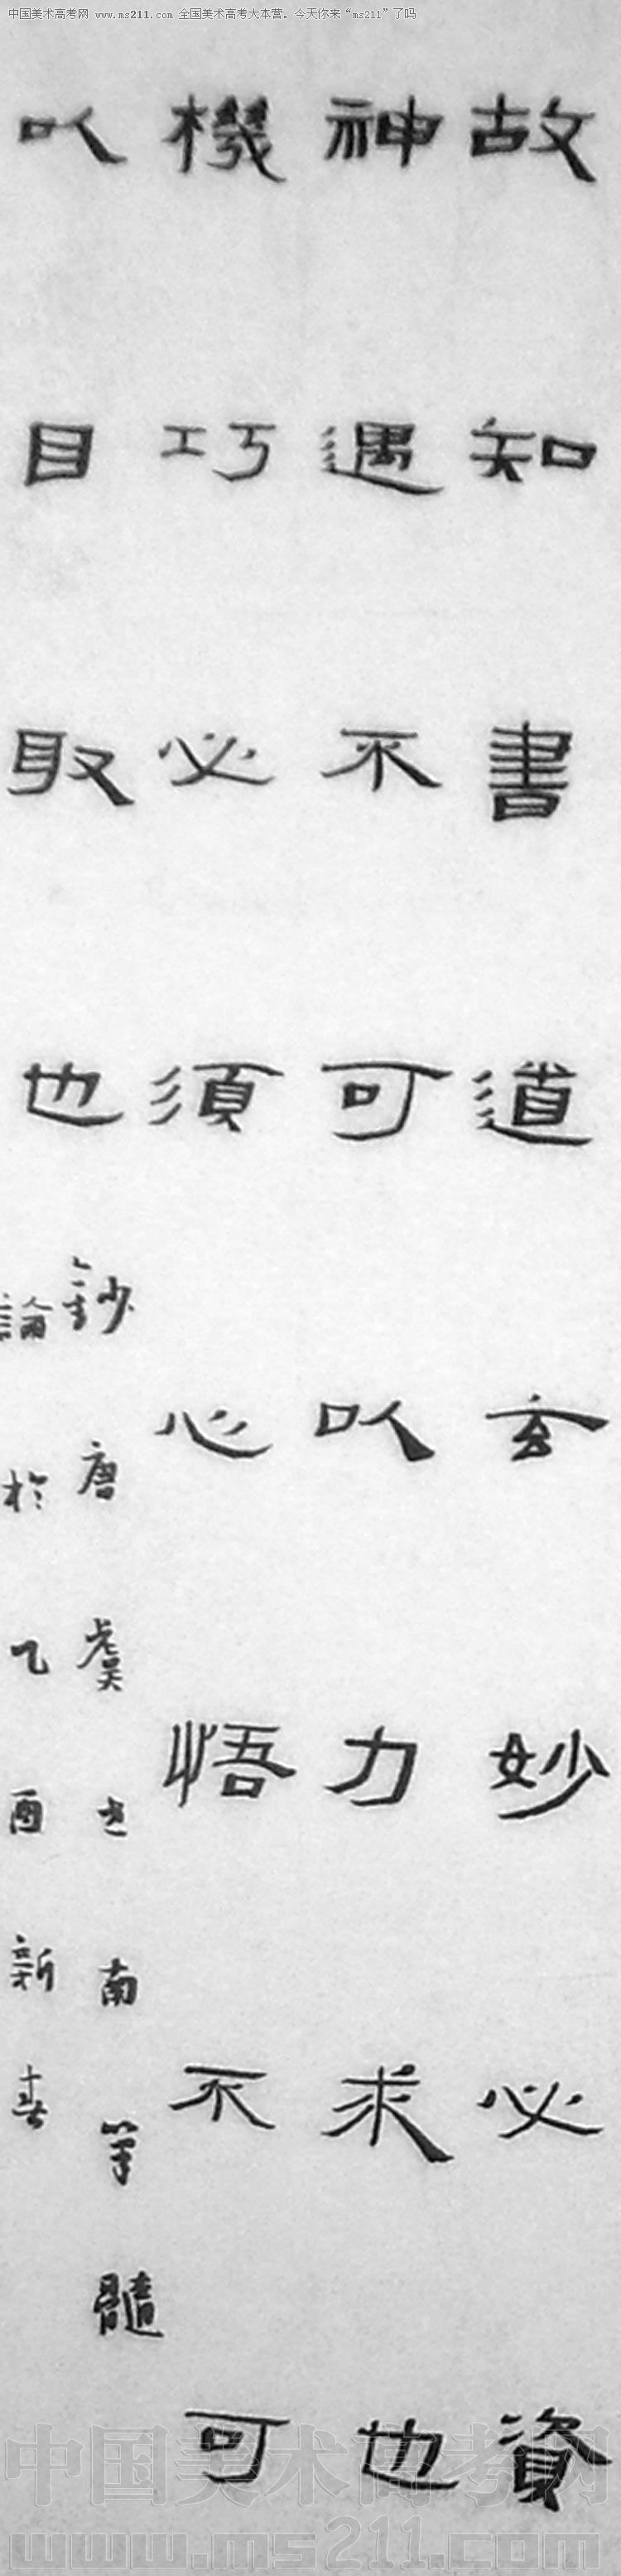 中国美术高考网 www.ms211.com 全国美术高考大本营。今天你来“ms211”了吗
故知書道玄妙必資
神遇不可以力求也
機巧必須心悟不可
以目取也
鈔唐虞世南筆髓
論於乙酉新春
中国美术高考网
www.ms211.com